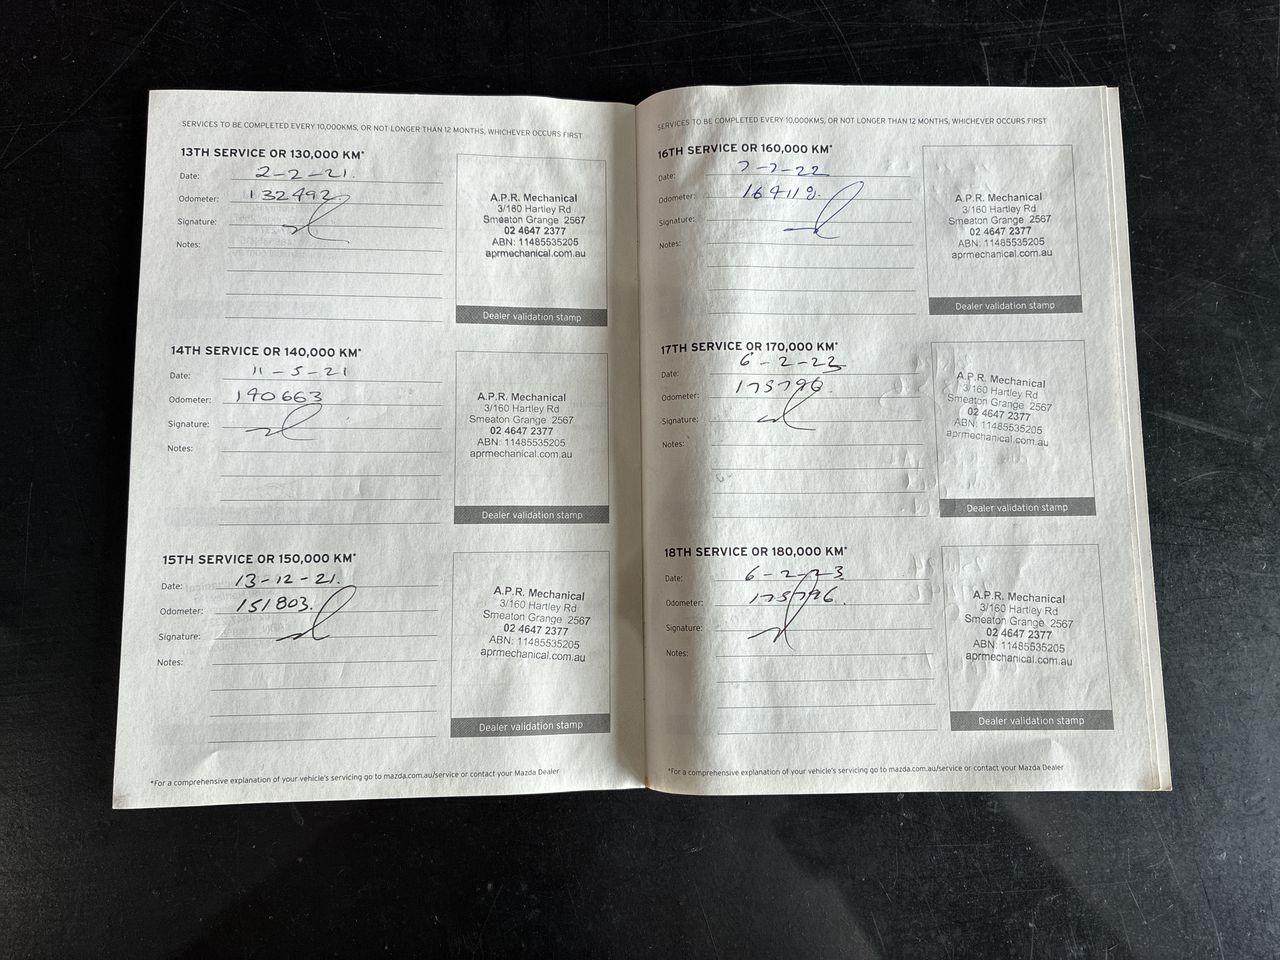 SERVICES TO BE COMPLETED EVERY 10,000KMS, OR NOT LONGER THAN 12 MONTHS, WHICHEVER OCCURS FIRST
13TH SERVICE OR 130,000 KM*
Date: 2-2-21.
Odometer: 132492.
Signature:
Notes:
A.P.R. Mechanical
3/160 Hartley Rd
Smeaton Grange 2567
02 4647 2377
ABN: 11485535205
aprmechanical.com.au
Dealer validation stamp
14TH SERVICE OR 140,000 KM*
Date: 11-5-21
Odometer: 140663
Signature:
Notes:
A.P.R. Mechanical
3/160 Hartley Rd
Smeaton Grange 2567
02 4647 2377
ABN: 11485535205
aprmechanical.com.au
Dealer validation stamp
15TH SERVICE OR 150,000 KM*
Date: 13-12-21.
Odometer: 151803.
Signature:
Notes:
A.P.R. Mechanical
3/160 Hartley Rd
Smeaton Grange 2567
02 4647 2377
ABN: 11485535205
aprmechanical.com.au
Dealer validation stamp
*For a comprehensive explanation of your vehicle's servicing go to mazda.com.au/service or contact your Mazda Dealer
SERVICES TO BE COMPLETED EVERY 10,000KMS, OR NOT LONGER THAN 12 MONTHS, WHICHEVER OCCURS FIRST
16TH SERVICE OR 160,000 KM*
Date: 7-7-22
Odometer:
Signature:
Notes:
A.P.R. Mechanical
3/160 Hartley Rd
Smeaton Grange 2567
02 4647 2377
ABN: 11485535205
aprmechanical.com.au
Dealer validation stamp
17TH SERVICE OR 170,000 KM*
Date: 6-2-23
Odometer: 175796.
Signature:
Notes:
A.P.R. Mechanical
3/160 Hartley Rd
Smeaton Grange 2567
02 4647 2377
ABN: 11485535205
aprmechanical.com.au
Dealer validation stamp
18TH SERVICE OR 180,000 KM*
Date: 6-2-23
Odometer: 175796.
Signature:
Notes:
A.P.R. Mechanical
3/160 Hartley Rd
Smeaton Grange 2567
02 4647 2377
ABN: 11485535205
aprmechanical.com.au
Dealer validation stamp
*For a comprehensive explanation of your vehicle's servicing go to mazda.com.au/service or contact your Mazda Dealer